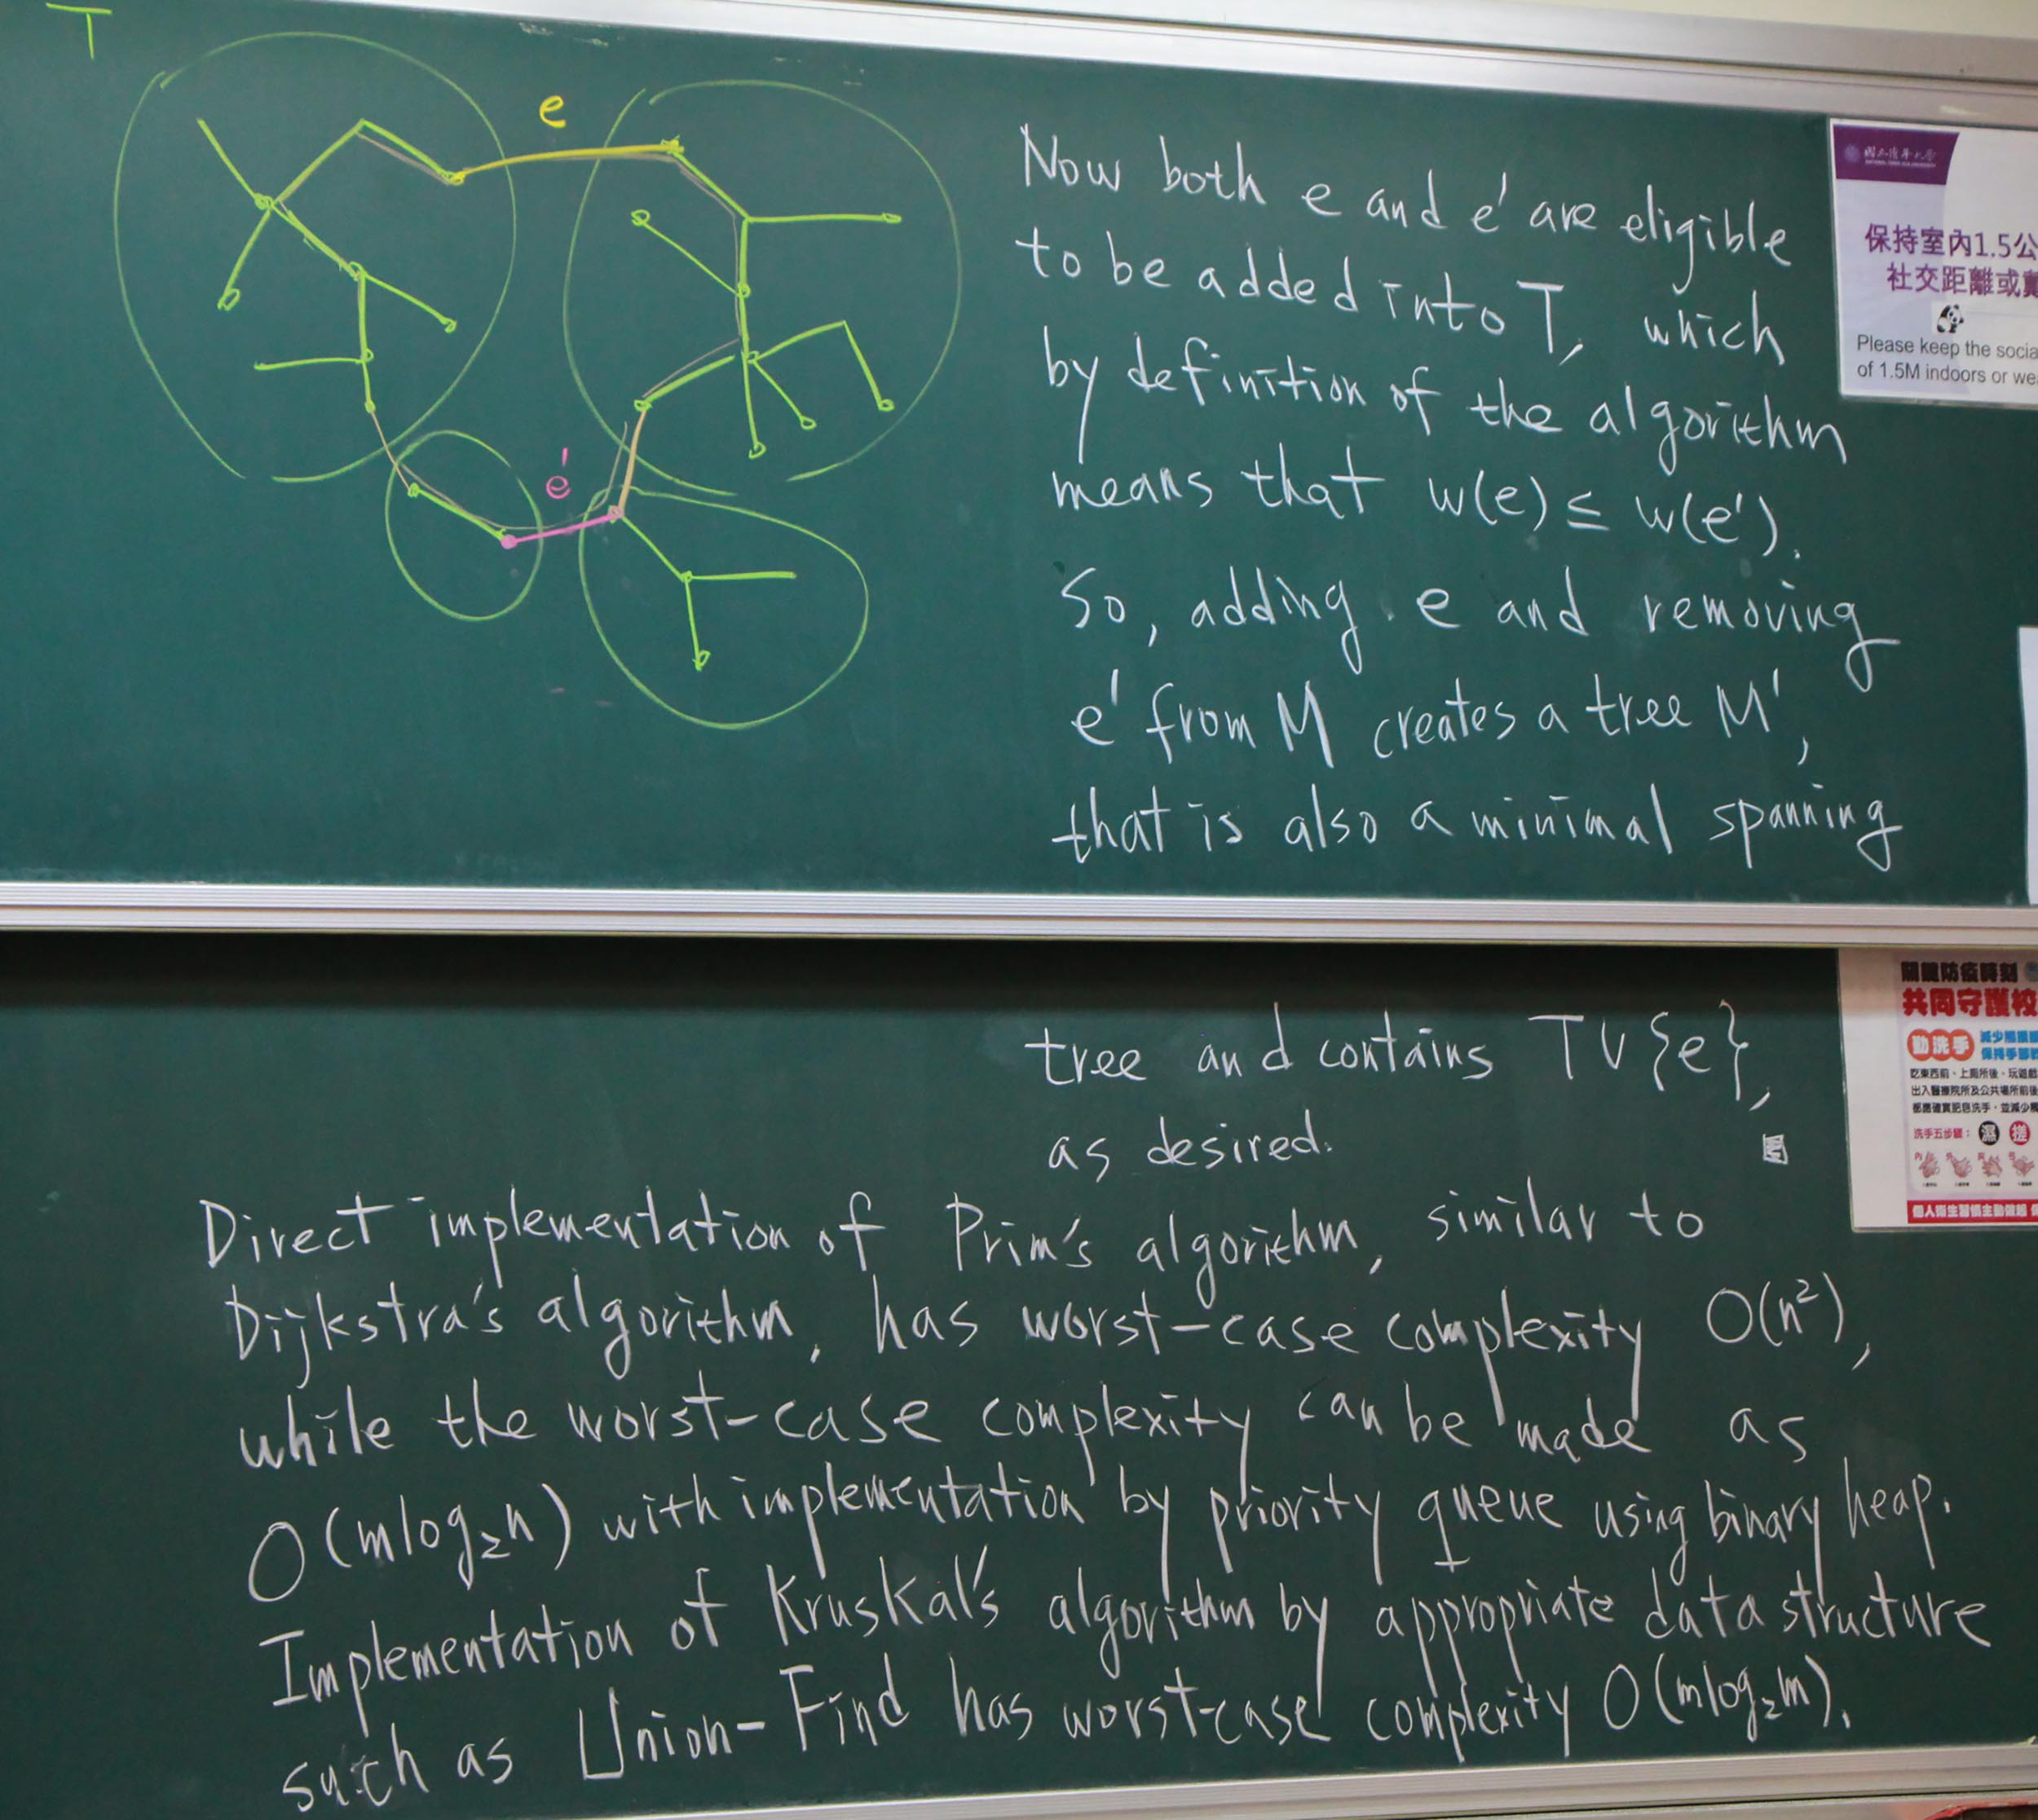 T
e
e'
Now both e and e' are eligible
to be added into T, which
by definition of the algorithm
means that w(e) ≤ w(e').
So, adding e and removing
e' from M creates a tree M',
that is also a minimal spanning
tree and contains T∪{e},
as desired.
Direct implementation of Prim's algorithm, similar to
Dijkstra's algorithm, has worst-case complexity O(n²),
while the worst-case complexity can be made as
O(mlog₂n) with implementation by priority queue using binary heap.
Implementation of Kruskal's algorithm by appropriate data structure
such as Union-Find has worst-case complexity O(mlog₂m).
國立清華大學
保持室內1.5公
社交距離或
Please keep the socia
of 1.5M indoors or we
關鍵防疫時刻
共同守護校
勤洗手
保持手部
洗手五步驟：
濕
搓